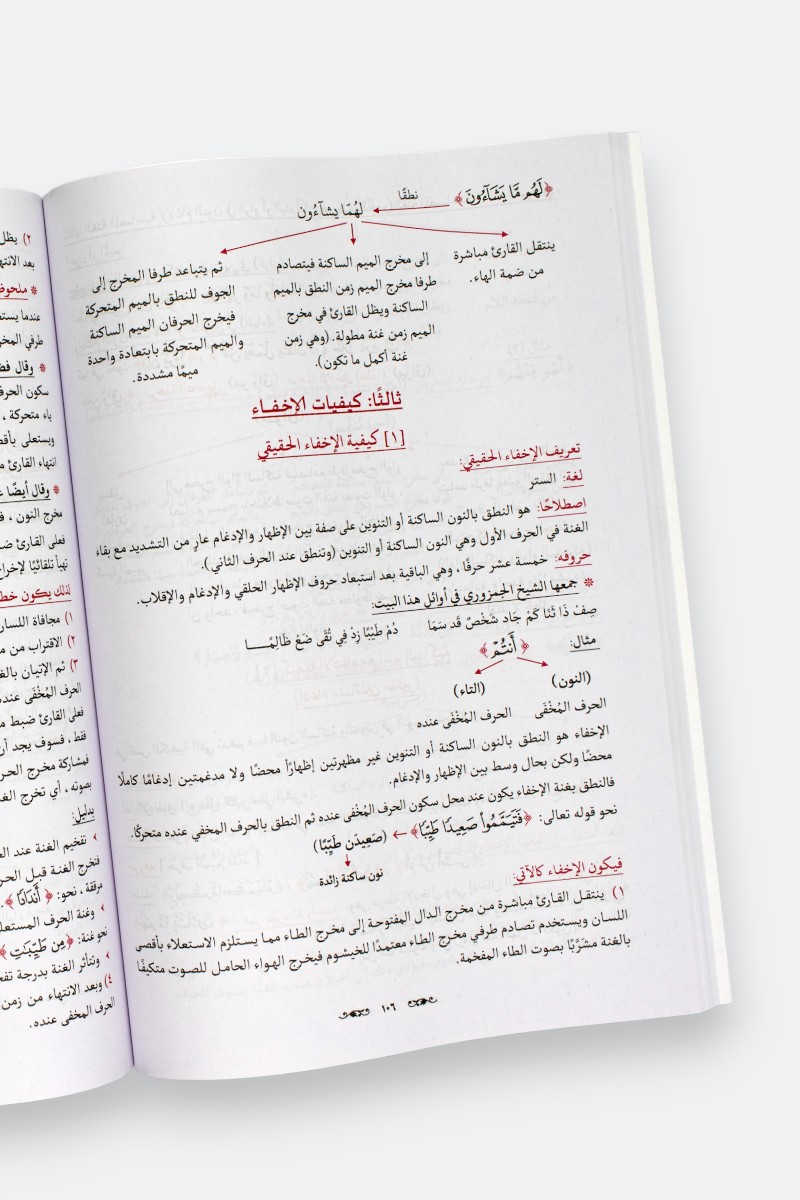 ﴿لَهُم مَّا يَشَآءُونَ﴾
نطقًا
لهُمّا يشآءُون
ينتقل القارئ مباشرة
من ضمة الهاء.
إلى مخرج الميم الساكنة فيتصادم
طرفا مخرج الميم زمن النطق بالميم
الساكنة ويظل القارئ في مخرج
الميم زمن غنة مطولة. (وهي زمن
غنة أكمل ما تكون).
ثم يتباعد طرفا المخرج إلى
الجوف للنطق بالميم المتحركة
فيخرج الحرفان الميم الساكنة
والميم المتحركة بابتعادة واحدة
ميمًا مشددة.
ثالثًا: كيفيات الإخفـاء
[١] كيفية الإخفاء الحقيقي
تعريف الإخفاء الحقيقي:
لغة: الستر
اصطلاحًا: هو النطق بالنون الساكنة أو التنوين على صفة بين الإظهار والإدغام عارٍ من التشديد مع بقاء
الغنة في الحرف الأول وهي النون الساكنة أو التنوين (وتنطق عند الحرف الثاني).
حروفه: خمسة عشر حرفًا ، وهي الباقية بعد استبعاد حروف الإظهار الحلقي والإدغام والإقلاب.
* جمعها الشيخ الجمزوري في أوائل هذا البيت:
صِفْ ذَا ثَنَا كَمْ جَاد شَخْصٌ قَد سَمَا دُمْ طَيِّبًا زِدْ فِي تُقًى ضَعْ ظَالِمًـــا
مثال:
﴿ أَنتُمْ ﴾
(النون) (التاء)
الحرف المُخْفَى الحرف المُخْفَى عنده
الإخفاء هو النطق بالنون الساكنة أو التنوين غير مظهرتين إظهارًا محضًا ولا مدغمتين إدغامًا كاملًا
محضًا ولكن بحال وسط بين الإظهار والإدغام.
فالنطق بغنة الإخفاء يكون عند محل سكون الحرف المُخْفى عنده ثم النطق بالحرف المخفي عنده متحركًا.
نحو قوله تعالى: ﴿فَتَيَمَّمُوا۟ صَعِيدًا طَيِّبًا﴾ ← (صَعِيدَن طَيِّبًا)
نون ساكنة زائدة
فيكون الإخفاء كالآتي:
١) ينتقـل القـارئ مباشـرة مـن مخـرج الـدال المفتوحـة إلى مخـرج الطـاء ممـا يستلزم الاسـتعلاء بأقصى
اللسـان ويسـتخدم تصـادم طرفي مخرج الطاء معتمدًا للخيشـوم فيخرج الهـواء الحامـل للصـوت متكيفًا
بالغنة مشَرَّبًا بصوت الطاء المفخمة.
١٠٦
٢) يظل
بعد الانتهـ
* ملحوظـ
عندما يستعـ
طرفي المخر
* وقال فضـ
سكون الحرف
ياء متحركة ،
ويستعلى بأقصـ
انتهاء القارئ مـ
* وقال أيضًا
مخرج النون ، فـ
فعلى القارئ ضـ
تهيأ تلقائيًا لإخراج
لذلك يكون خطـ
١) مجافاة اللسان
٢) الاقتراب من مـ
٣) ثم الإتيان بالغـ
الحرف المُخْفَى عنده
فعلى القارئ ضبط مـ
فقط ، فسوف يجد أن
فمشاركة مخرج الحر
بصوته ، أي تخرج الغـ
بدليل:
تفخيم الغنة عند الحـ
فتخرج الغنة قبـل الحر
مرققة ، نحو: ﴿ أَندَادًا ﴾
وغنة الحرف المستعلـ
نحو غنة: ﴿مِن طَيِّبَٰتِ﴾
وتتأثر الغنة بدرجة تفخـ
٤) وبعد الانتهاء من زمن
الحرف المخفى عنده.